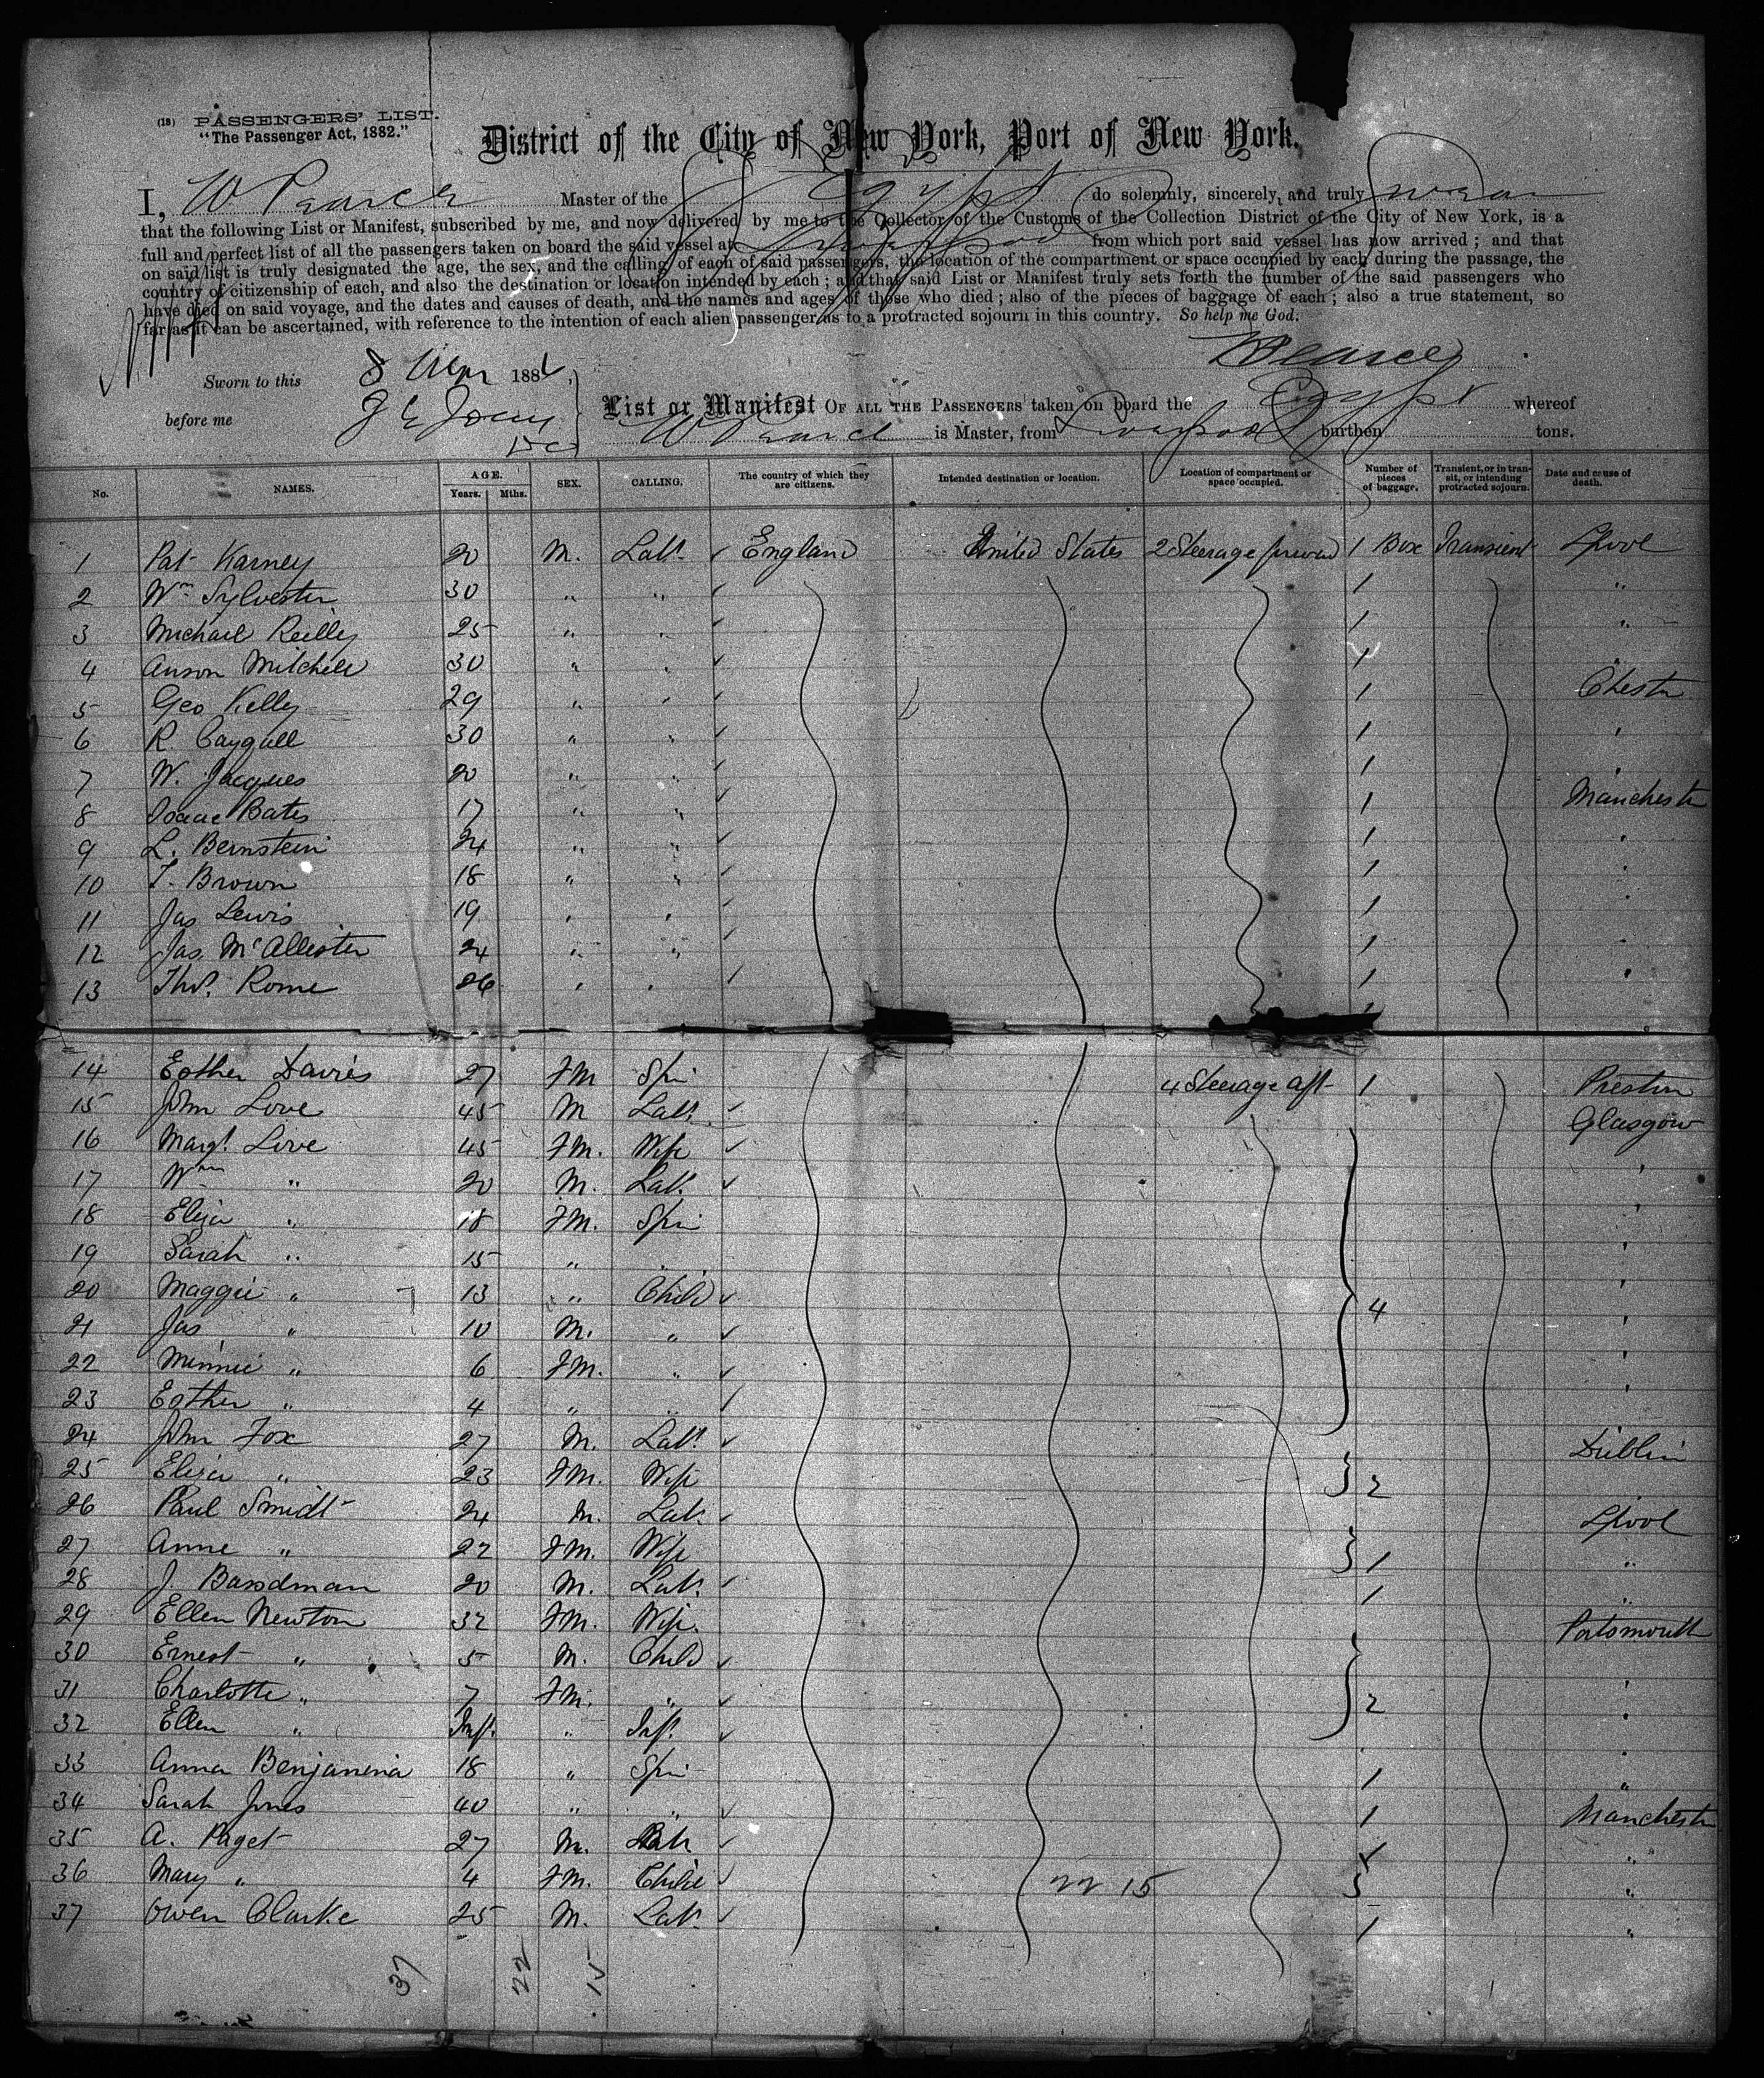 (18) PASSENGERS' LIST.
"The Passenger Act, 1882."
District of the City of New York, Port of New York.
I, W Pearce Master of the Egypt do solemnly, sincerely, and truly swear
that the following List or Manifest, subscribed by me, and now delivered by me to the Collector of the Customs of the Collection District of the City of New York, is a
full and perfect list of all the passengers taken on board the said vessel at Liverpool from which port said vessel has now arrived; and that
on said list is truly designated the age, the sex, and the calling of each of said passengers, the location of the compartment or space occupied by each during the passage, the
country of citizenship of each, and also the destination or location intended by each; and that said List or Manifest truly sets forth the number of the said passengers who
have died on said voyage, and the dates and causes of death, and the names and ages of those who died; also of the pieces of baggage of each; also a true statement, so
far as it can be ascertained, with reference to the intention of each alien passenger as to a protracted sojourn in this country. So help me God.
W Pearce
Sworn to this 8 188
before me
List or Manifest OF ALL THE PASSENGERS taken on board the Egypt whereof
W Pearce is Master, from Liverpool burthen tons.
No. NAMES. AGE. Years. Mths. SEX. CALLING. The country of which they are citizens. Intended destination or location. Location of compartment or space occupied. Number of pieces of baggage. Transient, or in transit, or intending protracted sojourn. Date and cause of death.
1 Pat Karney 20 M. Labr. England United States 2 Steerage forward 1 Box Transient Lpool
2 Wm Sylvester 30 " " 1 "
3 Michael Reilly 25 " " 1 "
4 Anson Mitchell 30 " " 1 "
5 Geo Kelly 29 " " 1 Chestr
6 R. Caygall 30 " " 1 "
7 W. Jacques 20 " " 1 "
8 Isaac Bates 17 " " 1 Manchestr
9 L. Bernstein 24 " " 1 "
10 T. Brown 18 " " 1 "
11 Jas Lewis 19 " " 1 "
12 Jas. McAllister 24 " " 1 "
13 Thos. Rome 26 " " 1 "
14 Esther Davies 27 FM Spin 4 Steerage aft 1 Preston
15 John Love 45 M Labr. Glasgow
16 Margt. Love 45 FM. Wife "
17 Wm " 20 M. Labr. "
18 Eliza " 18 FM. Spin "
19 Sarah " 15 " " "
20 Maggie " 13 " Child "
21 Jas " 10 M. " 4 "
22 Minnie " 6 FM. " "
23 Esther " 4 " " "
24 John Fox 27 M. Labr. Dublin
25 Eliza " 23 FM. Wife 2
26 Paul Smidt 24 M. Labr. Lpool
27 Anne " 22 FM. Wife 1 "
28 J. Bassdman 20 M. Labr. 1 "
29 Ellen Newton 32 FM. Wife. Portsmouth
30 Ernest " 5 M. Child
31 Charlotte " 7 FM. " 2 "
32 Ellen " Inft. " Inft. "
33 Anna Benjamina 18 " Spin 1 "
34 Sarah Jones 40 " " 1 Manchestr
35 A. Paget 27 M. Labr "
36 Mary " 4 FM. Child "
22 15
37 Owen Clarke 25 M. Labr 1 "
37 22 15